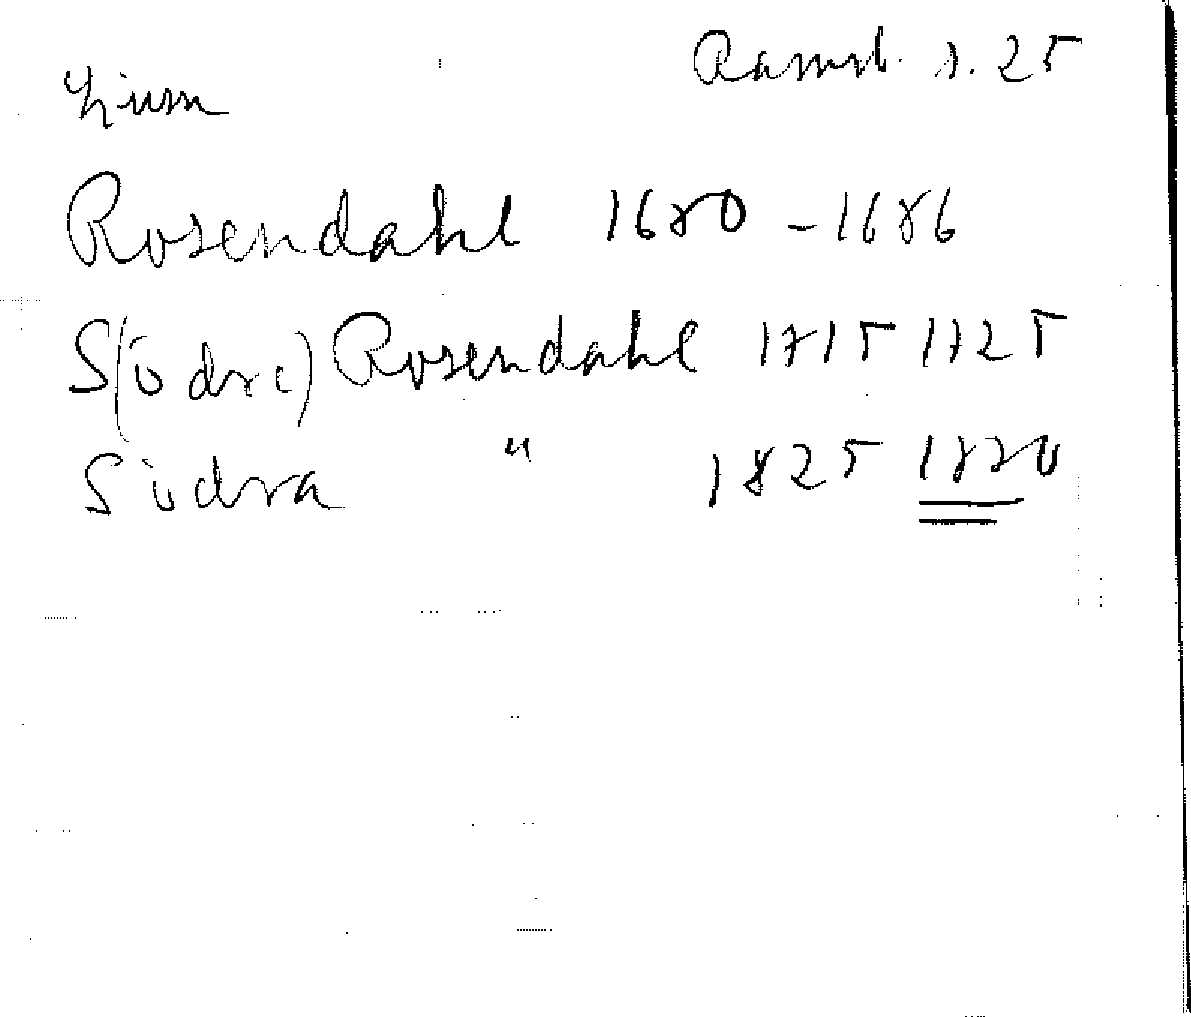 Ramsb. s. 25
Rosendahl 1680 - 1686
S(ödre) Rosendahl 1715 1725
Södra " 1825 1820